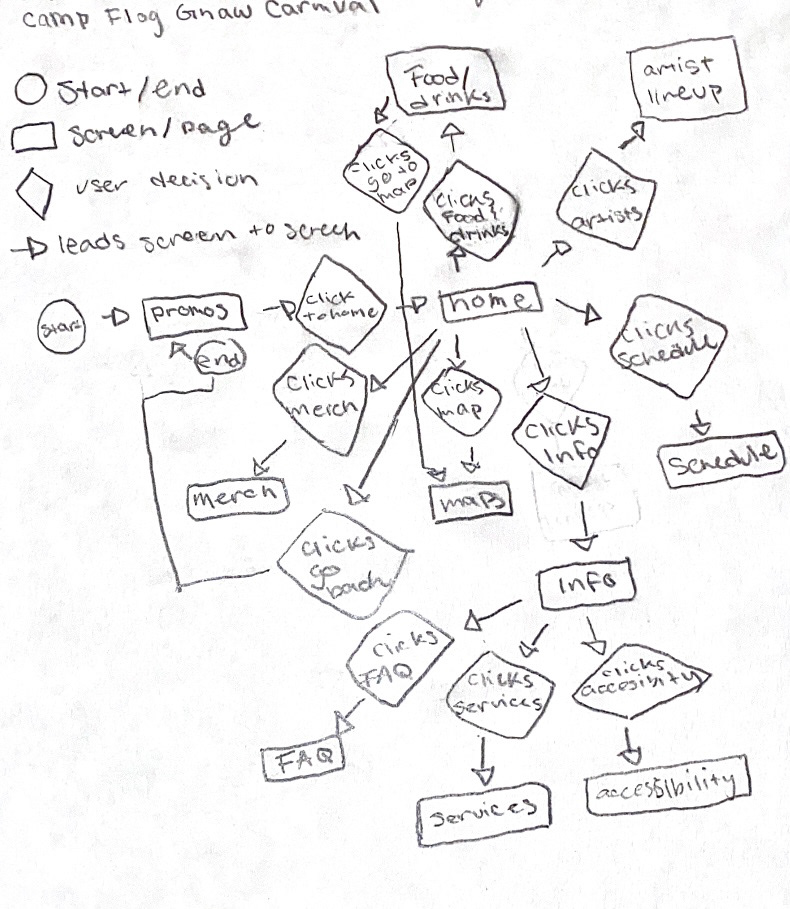 Camp Flog Gnaw Carnival
Start/end
screen/page
user decision
leads screen to screen
Food/
drinks
artist
lineup
clicks
go to
map
clicks
food &
drinks
clicks
artists
start
promos
click
to home
home
clicks
schedule
end
clicks
merch
clicks
map
clicks
info
schedule
merch
maps
clicks
go
back
info
clicks
FAQ
clicks
services
clicks
accesibity
FAQ
services
accessibility